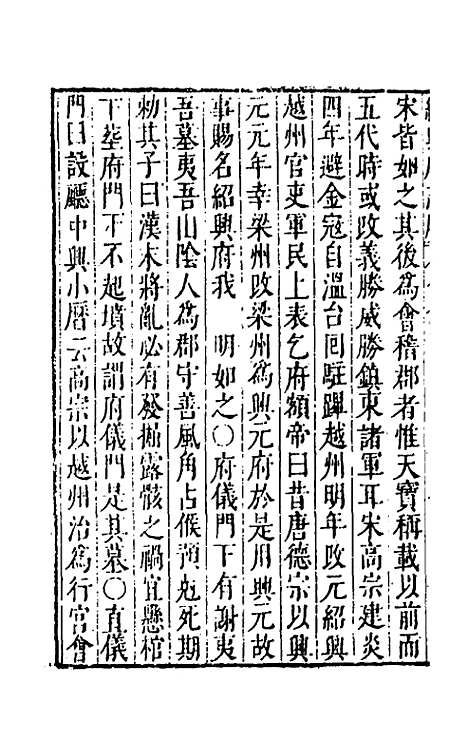 宋皆如之其後爲會稽郡者惟天寶稱載以前而
五代時或改義勝威勝鎮東諸軍耳宋高宗建炎
四年避金寇自溫台囘駐蹕越州明年改元紹興
越州官吏軍民上表乞府額帝曰昔唐德宗以興
元元年幸梁州改梁州爲興元府於是用興元故
事賜名紹興府我　明如之〇府儀門下有謝夷
吾墓夷吾山陰人爲郡守善風角占候預尅死期
勑其子曰漢末將亂必有發掘露骸之禍宜懸棺
下塟府門下不起墳故謂府儀門是其墓〇直儀
門曰設廳中興小曆云高宗以越州治爲行宮會